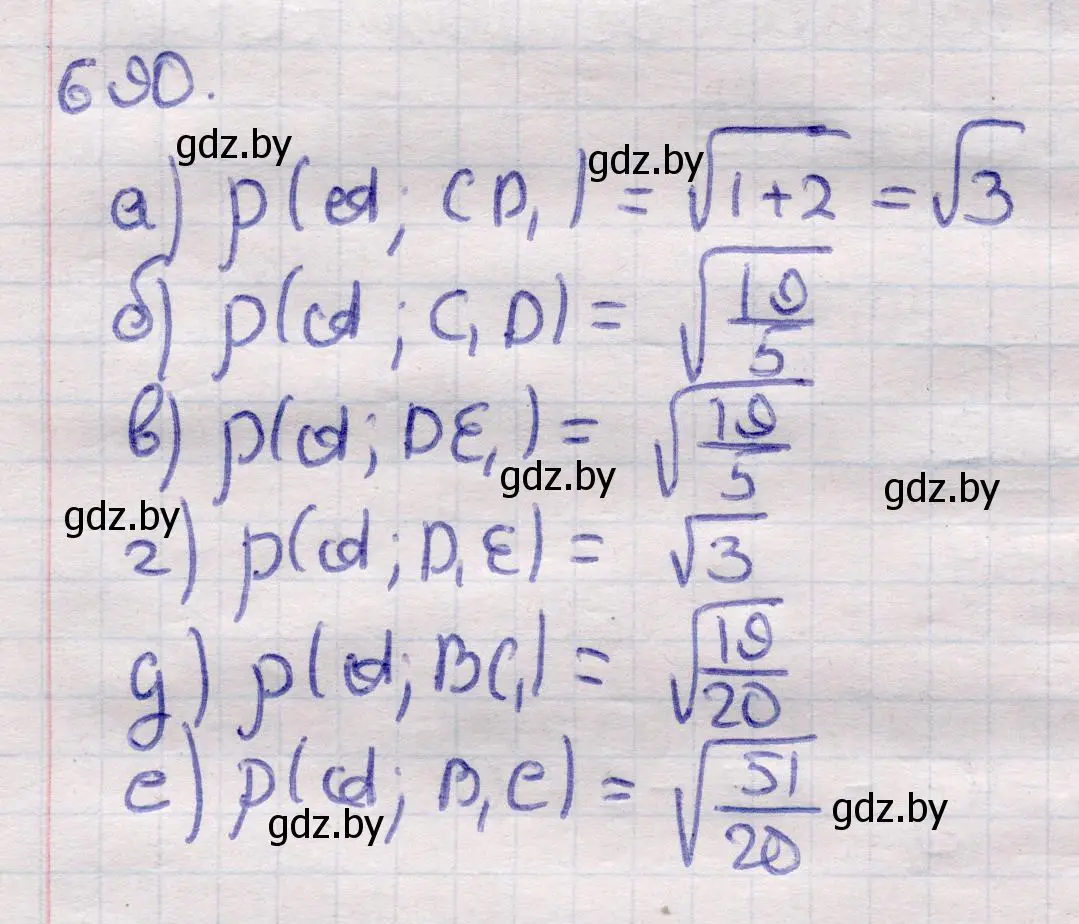 690.
gdz.by
а) p(A; CD₁) = √(1+2) = √3
gdz.by
б) p(A; C₁D) = √(19/5)
в) p(A; DE₁) = √(19/5)
gdz.by
gdz.by
gdz.by
г) p(A; D₁E) = √3
д) p(A; BC₁) = √(19/20)
е) p(A; B₁C) = √(51/20)
gdz.by
gdz.by